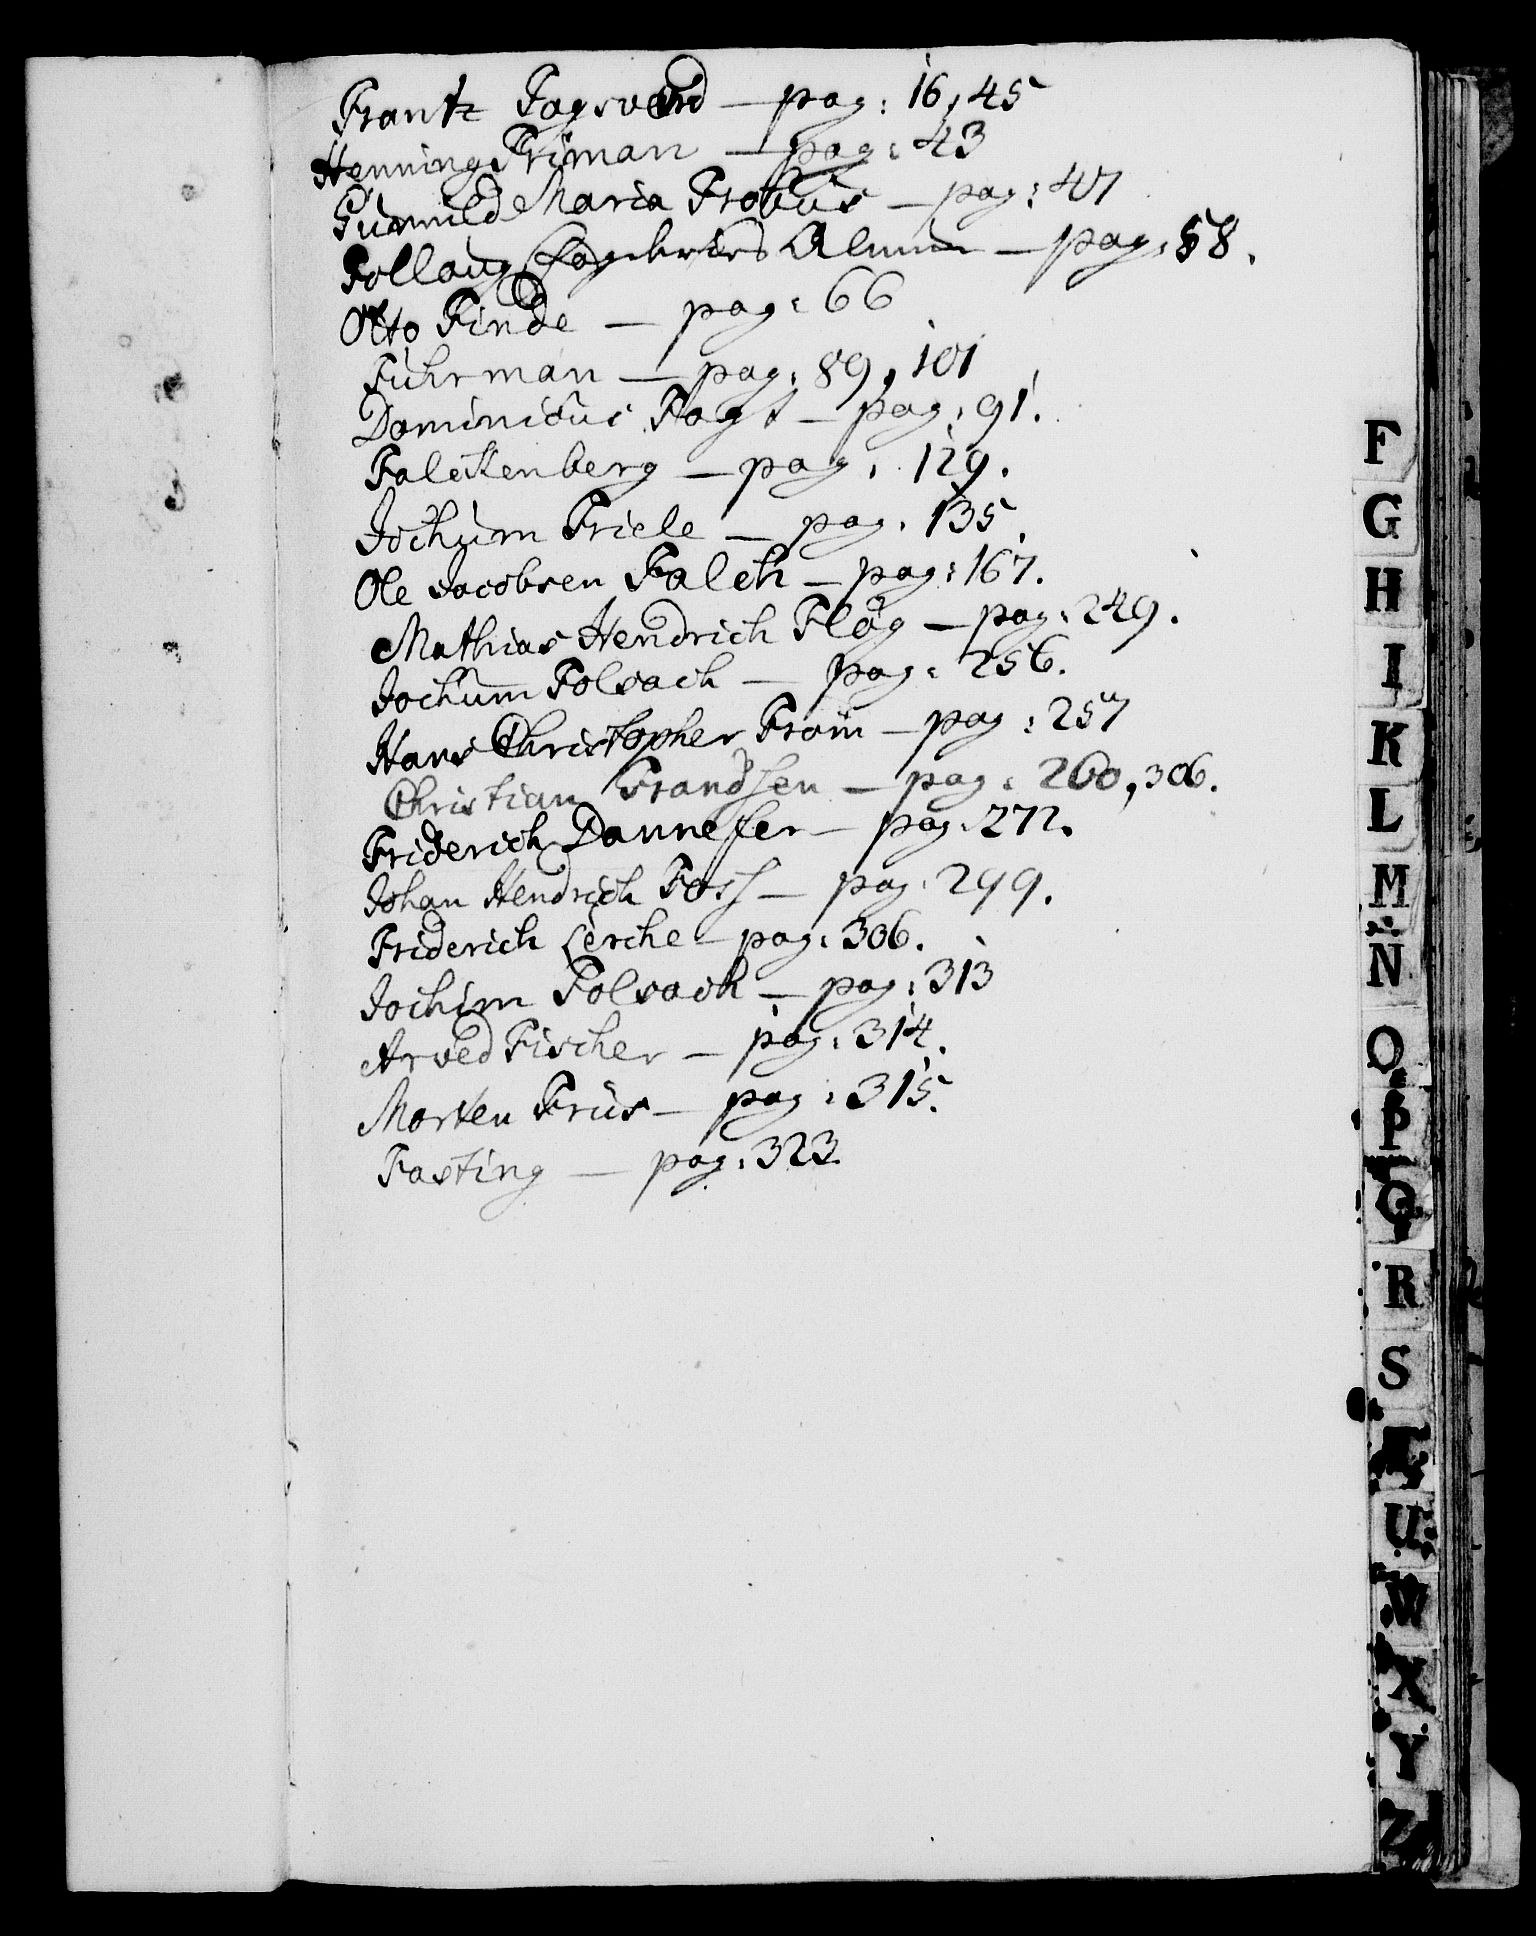 Frantz Fogsverd — pag: 16, 45
Henning Friman — pag: 43
Gunnild Maria Frobus — pag: 47
Follaug — pag: 58.
Otto Finde — pag: 66
Fuhrman — pag: 89, 101
Dominicus Fogt — pag: 91.
Falckenberg — pag: 129.
Jochum Friele — pag: 135.
Ole Jacobsen Falch — pag: 167.
Mathias Hendrich Flög — pag: 249.
Jochum Folsach — pag: 256.
Hans Christopher From — pag: 257
Christian Frandsen — pag: 260, 306.
Friderich Dannefer — pag: 272.
Johan Hendrich Foss — pag: 299.
Friderich Lerche — pag: 306.
Jochim Folsach — pag: 313
Arved Fischer — pag: 314.
Morten Friis — pag: 315.
Fasting — pag: 323.
F
G
H
I
K
L
M
N
O
P
Q
R
S
U
W
X
Y
Z